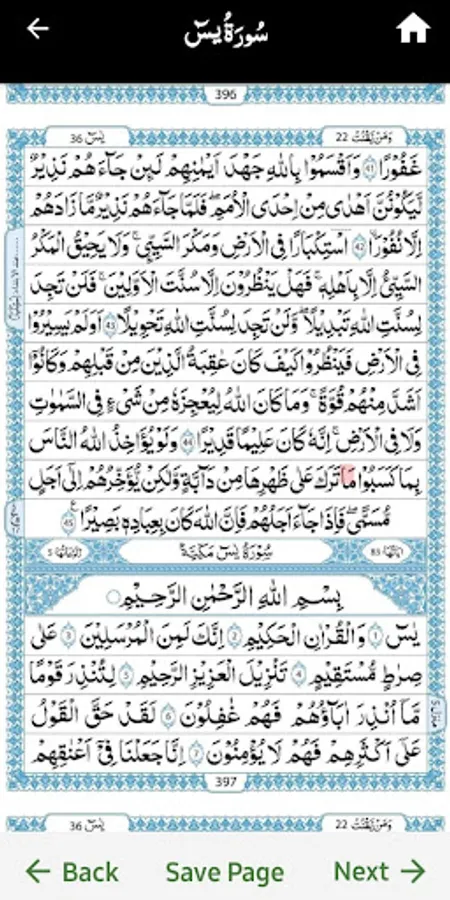 سُورَةُ يٰسٓ
396
يٰسٓ 36
وَمَنْ يَّقْنُتْ 22
غَفُوْرًا ﴿41﴾ وَاَقْسَمُوْا بِاللّٰهِ جَهْدَ اَيْمَانِهِمْ لَىِٕنْ جَآءَهُمْ نَذِيْرٌ
لَّيَكُوْنُنَّ اَهْدٰى مِنْ اِحْدَى الْاُمَمِ ۚ فَلَمَّا جَآءَهُمْ نَذِيْرٌ مَّا زَادَهُمْ
اِلَّا نُفُوْرًا ﴿42﴾ اۨسْتِكْبَارًا فِى الْاَرْضِ وَمَكْرَ السَّيِّئِ ؕ وَلَا يَحِيْقُ الْمَكْرُ
السَّيِّئُ اِلَّا بِاَهْلِهٖ ؕ فَهَلْ يَنْظُرُوْنَ اِلَّا سُنَّتَ الْاَوَّلِيْنَ ۚ فَلَنْ تَجِدَ
لِسُنَّتِ اللّٰهِ تَبْدِيْلًا ۚ وَلَنْ تَجِدَ لِسُنَّتِ اللّٰهِ تَحْوِيْلًا ﴿43﴾ اَوَلَمْ يَسِيْرُوْا
فِى الْاَرْضِ فَيَنْظُرُوْا كَيْفَ كَانَ عَاقِبَةُ الَّذِيْنَ مِنْ قَبْلِهِمْ وَكَانُوْٓا
اَشَدَّ مِنْهُمْ قُوَّةً ؕ وَمَا كَانَ اللّٰهُ لِيُعْجِزَهٗ مِنْ شَىْءٍ فِى السَّمٰوٰتِ
وَلَا فِى الْاَرْضِ ؕ اِنَّهٗ كَانَ عَلِيْمًا قَدِيْرًا ﴿44﴾ وَلَوْ يُؤَاخِذُ اللّٰهُ النَّاسَ
بِمَا كَسَبُوْا مَا تَرَكَ عَلٰى ظَهْرِهَا مِنْ دَآبَّةٍ وَّلٰكِنْ يُّؤَخِّرُهُمْ اِلٰٓى اَجَلٍ
مُّسَمًّى ۚ فَاِذَا جَآءَ اَجَلُهُمْ فَاِنَّ اللّٰهَ كَانَ بِعِبَادِهٖ بَصِيْرًا ﴿45﴾
اٰيَاتُهَا 83
سُوْرَةُ يٰسٓ مَكِّيَّةٌ
رُكُوْعَاتُهَا 5
بِسْمِ اللّٰهِ الرَّحْمٰنِ الرَّحِيْمِ
يٰسٓ ﴿1﴾ وَالْقُرْاٰنِ الْحَكِيْمِ ﴿2﴾ اِنَّكَ لَمِنَ الْمُرْسَلِيْنَ ﴿3﴾ عَلٰى
صِرَاطٍ مُّسْتَقِيْمٍ ﴿4﴾ تَنْزِيْلَ الْعَزِيْزِ الرَّحِيْمِ ﴿5﴾ لِتُنْذِرَ قَوْمًا
مَّآ اُنْذِرَ اٰبَآؤُهُمْ فَهُمْ غٰفِلُوْنَ ﴿6﴾ لَقَدْ حَقَّ الْقَوْلُ
عَلٰٓى اَكْثَرِهِمْ فَهُمْ لَا يُؤْمِنُوْنَ ﴿7﴾ اِنَّا جَعَلْنَا فِىْٓ اَعْنَاقِهِمْ
397
يٰسٓ 36
وَمَنْ يَّقْنُتْ 22
Back
Save Page
Next